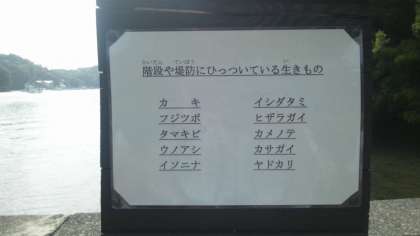 かいだん ていぼう い
階段や堤防にひっついている生きもの
カキ イシダタミ
フジツボ ヒザラガイ
タマキビ カメノテ
ウノアシ カサガイ
イソニナ ヤドカリ